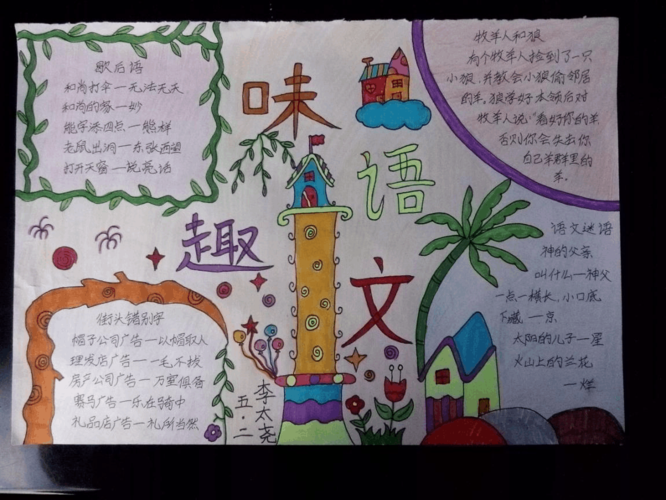 趣味语文
歇后语
和尚打伞一无法无天
和尚的爸一妙
能字添四点一熊样
老鼠出洞一东张西望
打开天窗一说亮话
牧羊人和狼
有个牧羊人捡到了一只
小狼,并教会小狼偷邻居
的羊。狼学好本领后对
牧羊人说"看好你的羊
否则你会失去你
自己羊群里的
羊。
街头错别字
帽子公司广告一以帽取人
理发店广告一一毛不拔
房产公司广告一万室俱备
赛马广告一乐在骑中
礼品店广告一礼所当然
语文谜语
神的父亲
叫什么一神父
一点一横长,小口底
下藏。一京
太阳的儿子一星
火山上的兰花
一烂
李太尧
五·二